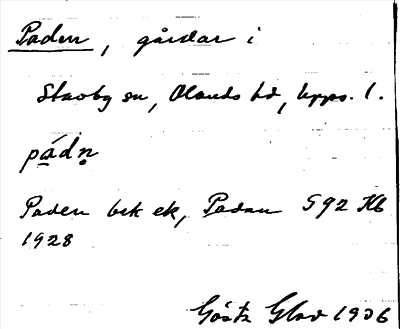 Paden, gårdar i
Stavby sn, Olands hd, Upps. l.
pádn̥
Paden bek ek, Padan 592 Kb
1928
Gösta Glad 1936